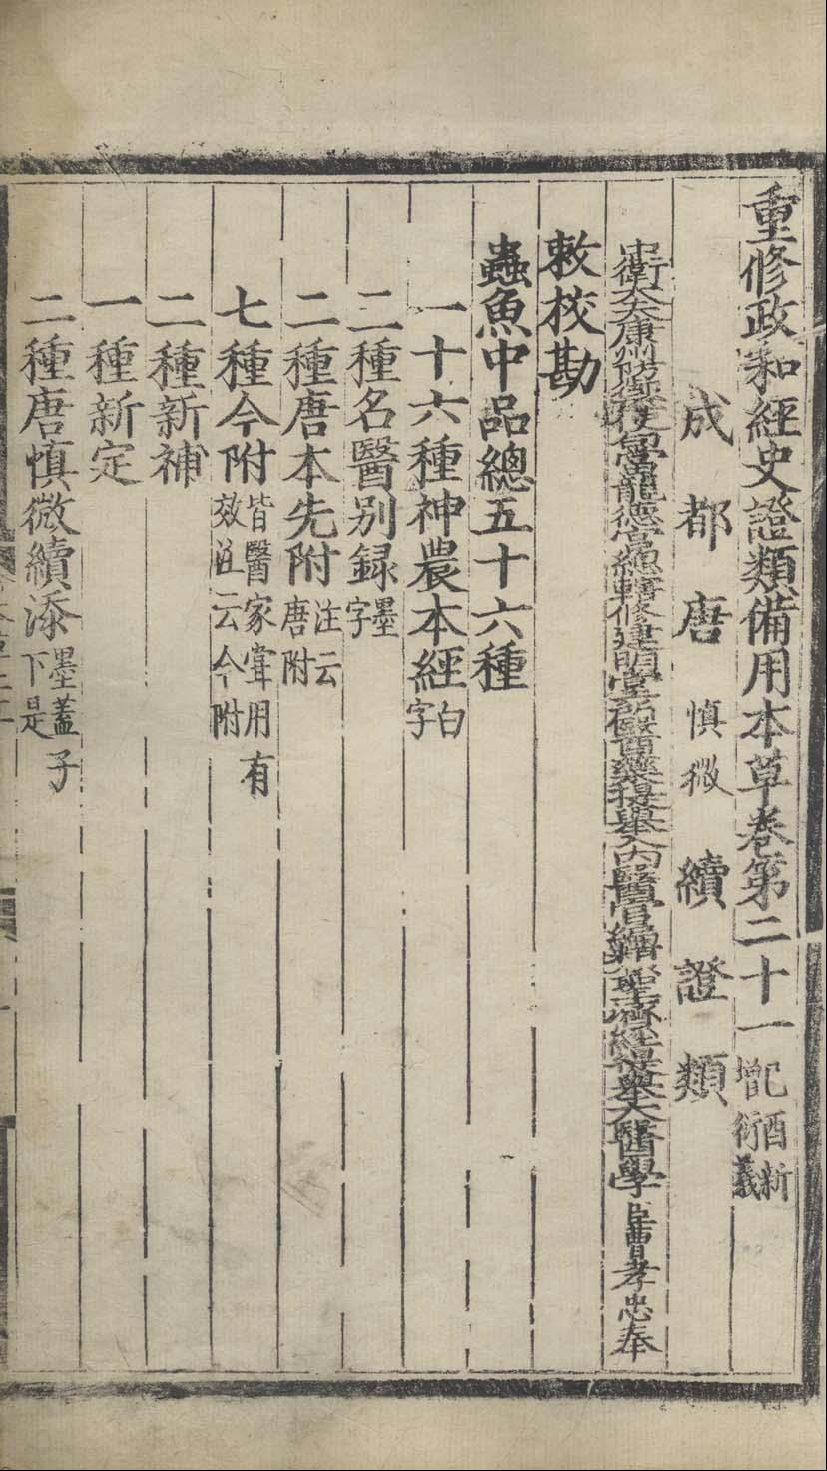 重修政和經史證類備用本草卷第二十一己酉新增衍義
成都唐慎微續證類
中衛大夫康州防禦使句當龍德宮總轄修建明堂所醫藥提舉入內醫官編類聖濟經提舉大醫學臣曹孝忠奉
敕校勘
蟲魚中品總五十六種
一十六種神農本經白字
二種名醫別録墨字
二種唐本先附注云唐附
七種今附皆醫家嘗用有效注云今附
二種新補
一種新定
二種唐慎微續添墨蓋子下是